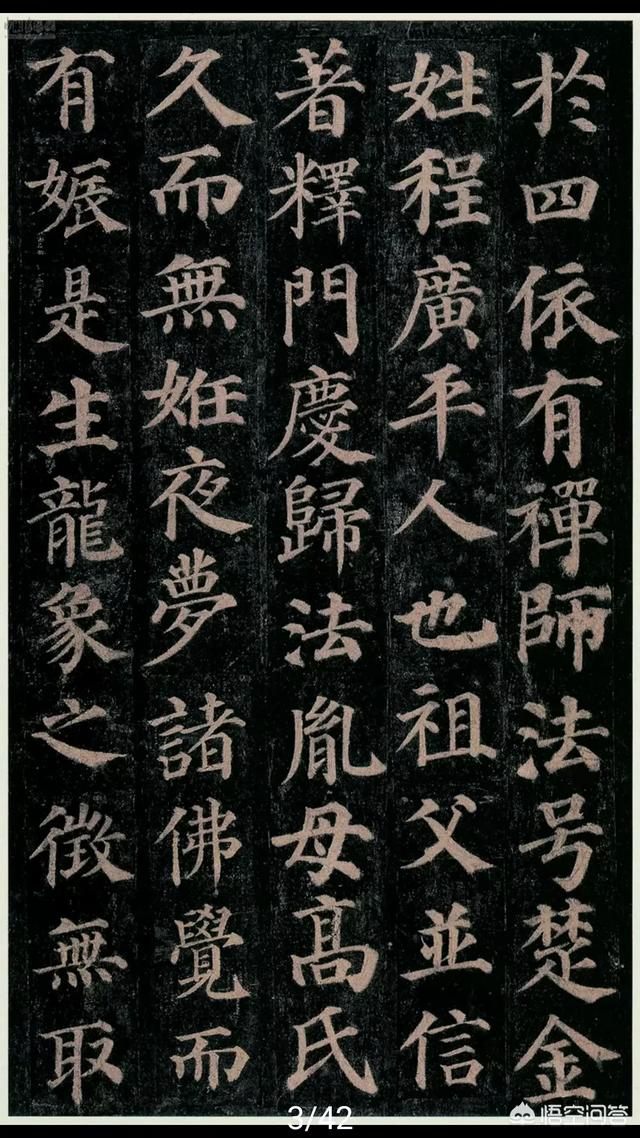 於四依有禪師法号楚金
姓程廣平人也祖父並信
著釋門慶歸法胤母髙氏
久而無姙夜夢諸佛覺而
有娠是生龍象之徵無取
3/42
悟空问答